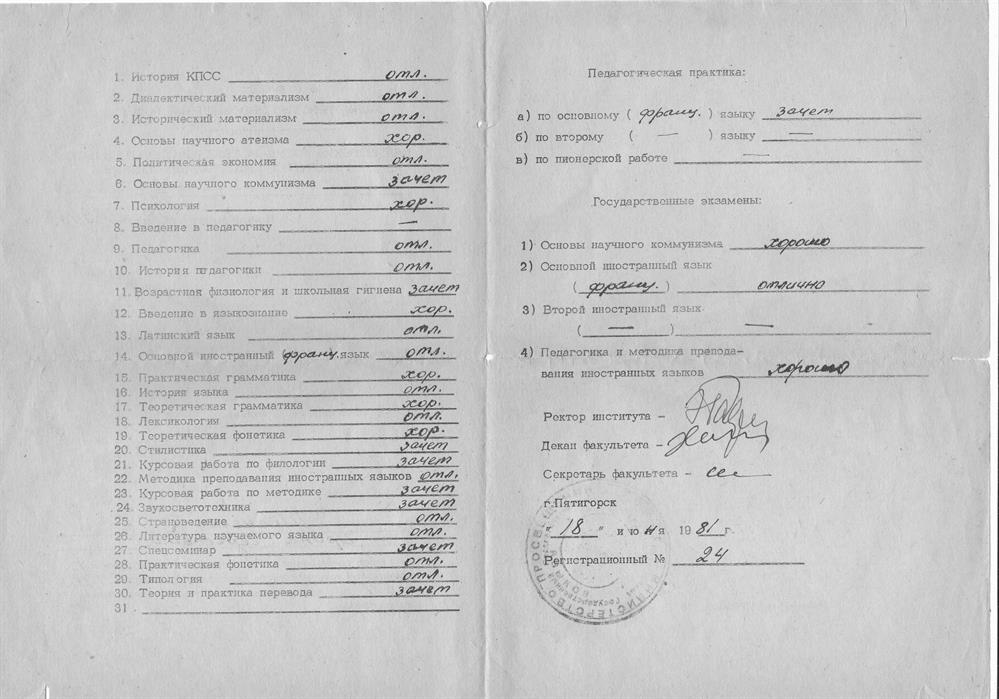 1. История КПСС отл.
2. Диалектический материализм отл.
3. Исторический материализм отл.
4. Основы научного атеизма хор.
5. Политическая экономия отл.
6. Основы научного коммунизма зачет
7. Психология хор.
8. Введение в педагогику —
9. Педагогика отл.
10. История педагогики отл.
11. Возрастная физиология и школьная гигиена зачет
12. Введение в языкознание хор.
13. Латинский язык отл.
14. Основной иностранный (франц. язык отл.
15. Практическая грамматика хор.
16. История языка отл.
17. Теоретическая грамматика хор.
18. Лексикология отл.
19. Теоретическая фонетика хор.
20. Стилистика зачет
21. Курсовая работа по филологии зачет
22. Методика преподавания иностранных языков отл.
23. Курсовая работа по методике зачет
24. Звукосветотехника зачет
25. Страноведение отл.
26. Литература изучаемого языка отл.
27. Спецсеминар зачет
28. Практическая фонетика отл.
29. Типология отл.
30. Теория и практика перевода зачет
31.
Педагогическая практика:
а) по основному ( франц. ) языку зачет
б) по второму ( — ) языку —
в) по пионерской работе —
Государственные экзамены:
1) Основы научного коммунизма хорошо
2) Основной иностранный язык
( франц. ) отлично
3) Второй иностранный язык
( — ) —
4) Педагогика и методика препода-
вания иностранных языков хорошо
Ректор института -
Декан факультета -
Секретарь факультета -
г.Пятигорск
" 18 " июня 1981 г.
Регистрационный № 24